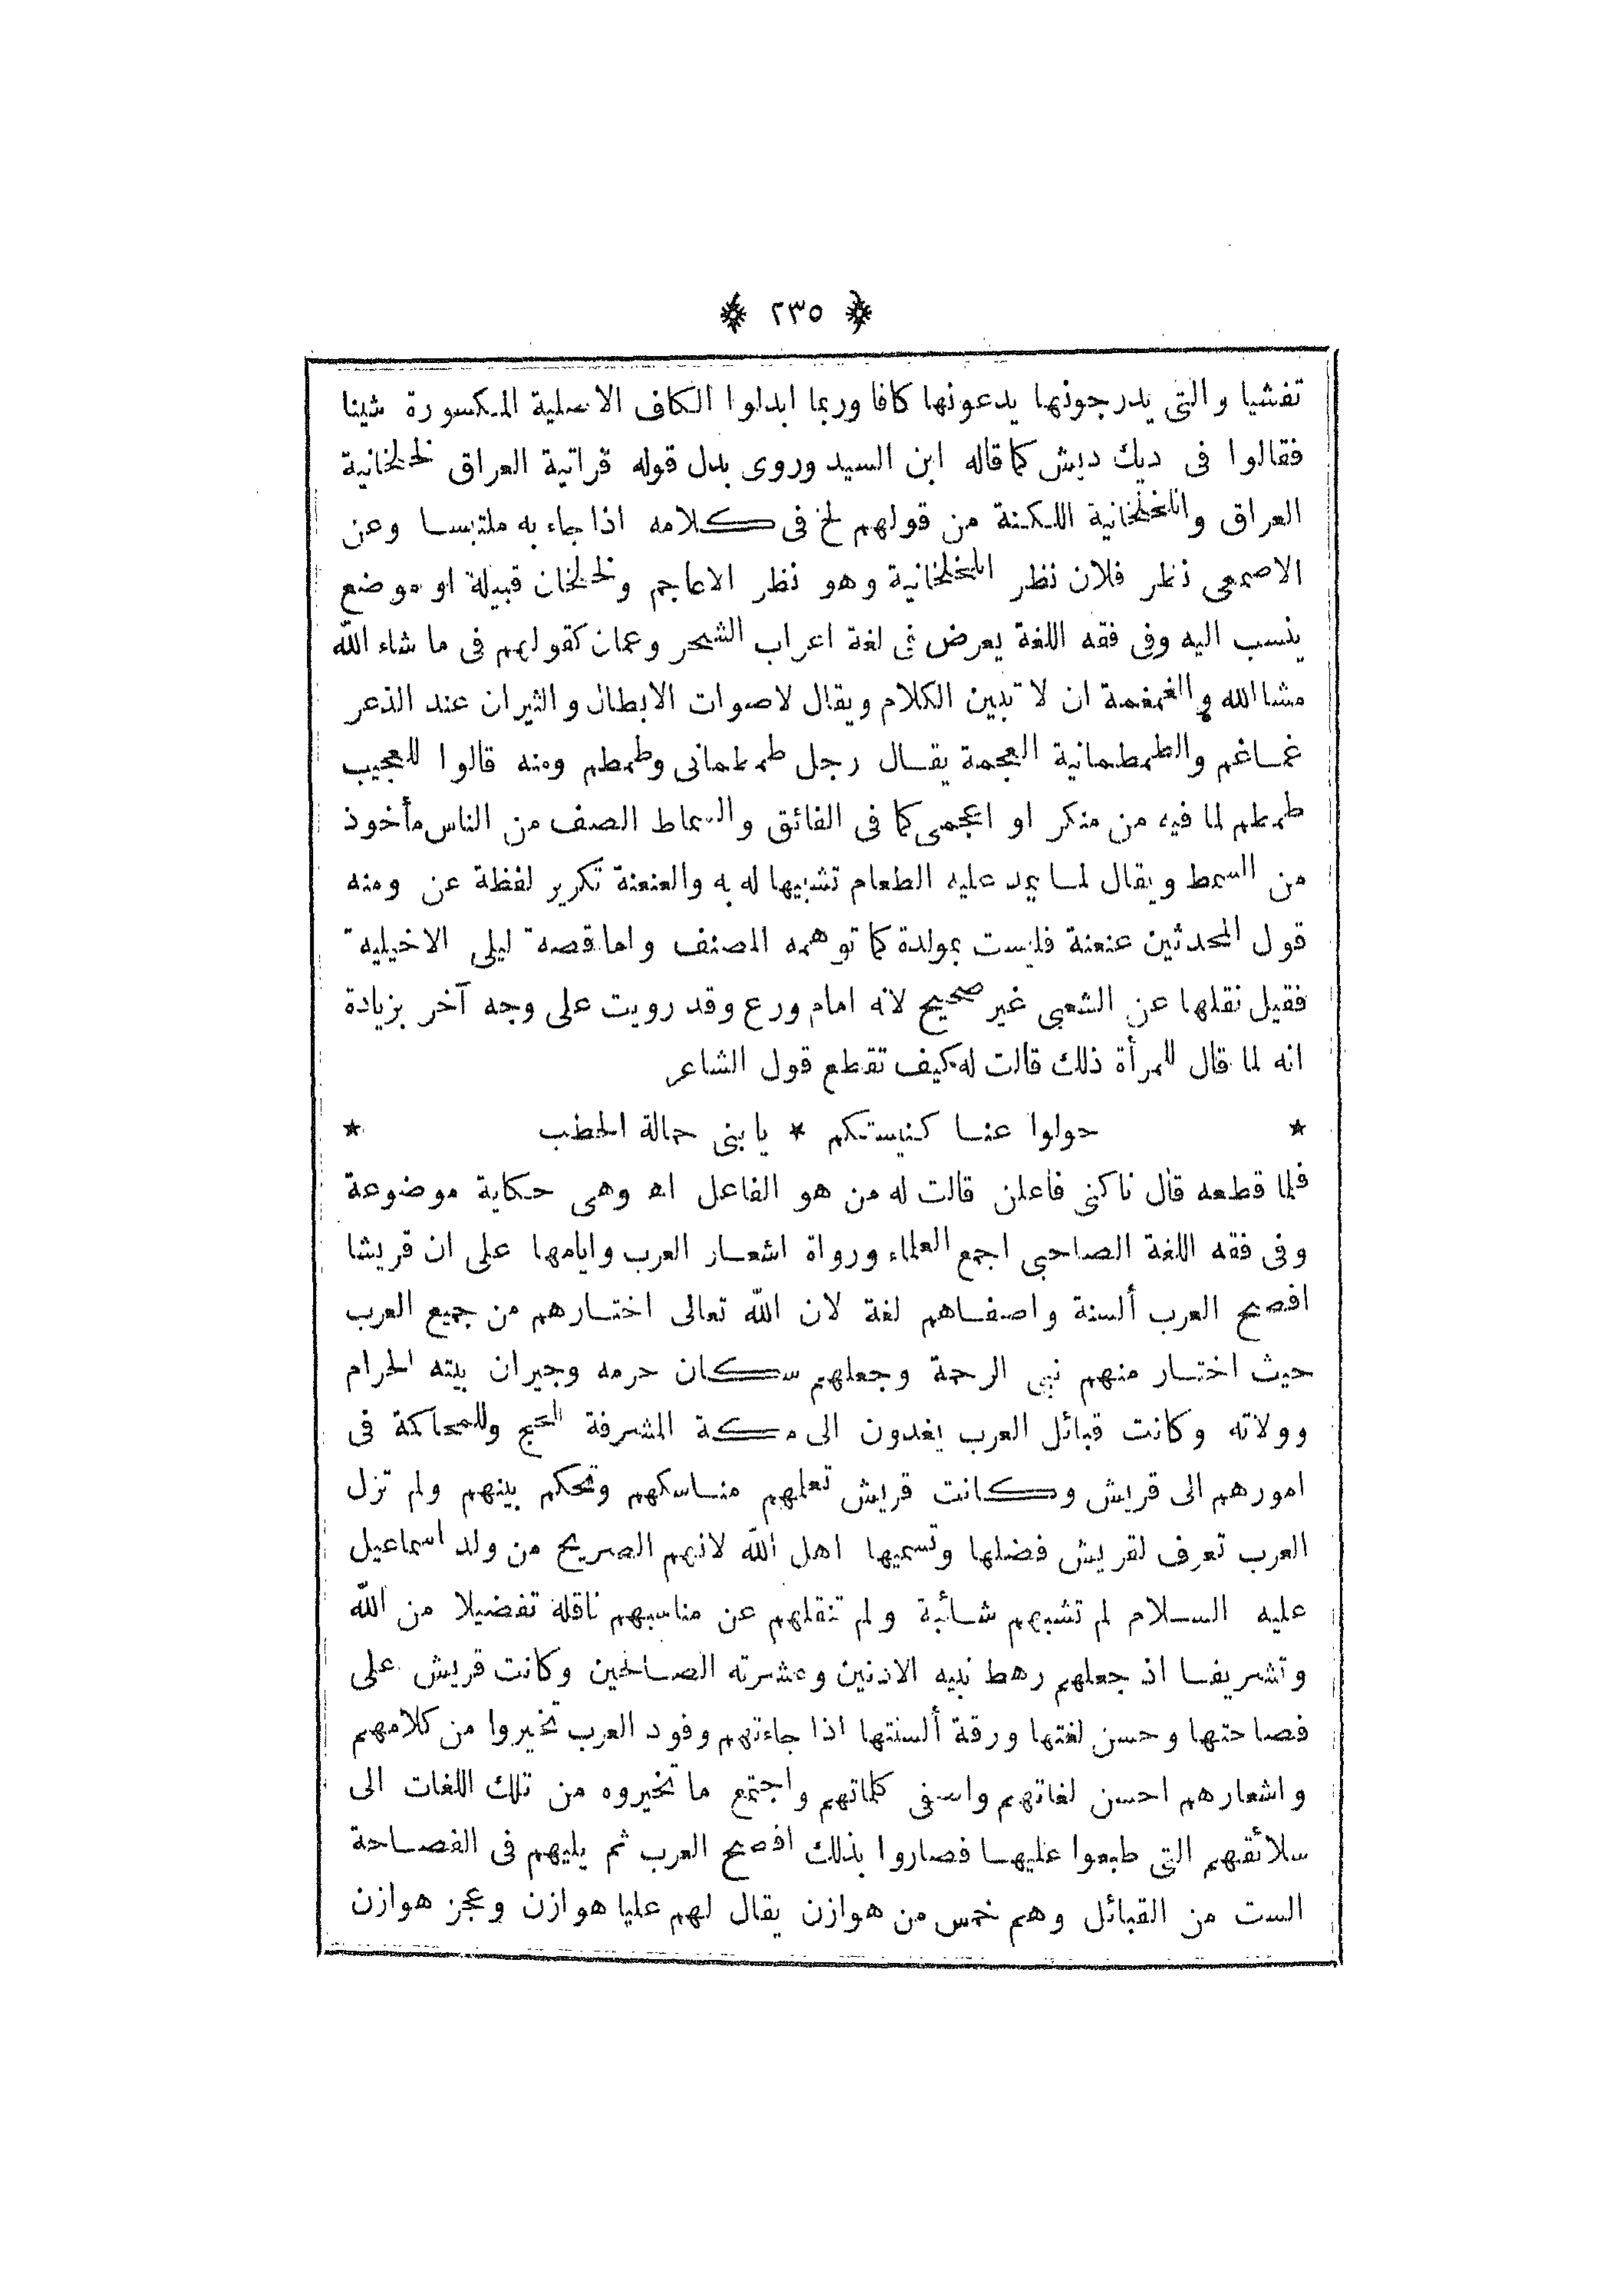 ﴿ ٢٣٥ ﴾
تفشيا والتى يدرجونها يدعونها كافا وربما ابدلوا الكاف الاصلية المكسورة شينا
فقالوا فى ديك ديش كما قاله ابن السيد وروى بدل قوله فراتية العراق لخلخانية
العراق واللخلخانية اللكنة من قولهم لخ فى كلامه اذا جاء به ملتبسا وعن
الاصمعى نظر فلان نظر اللخلخانية وهو نظر الاعاجم ولخلخان قبيلة او موضع
ينسب اليه وفى فقه اللغة يعرض فى لغة اعراب الشحر وعمان كقولهم فى ما شاء الله
مشا الله والغمغمة ان لا تبين الكلام ويقال لاصوات الابطال والثيران عند الذعر
غماغم والطمطمانية العجمة يقال رجل طمطمانى وطمطم ومنه قالوا للعجيب
طمطم لما فيه من منكر او اعجمى كما فى الفائق والسماط الصف من الناس مأخوذ
من السمط ويقال لما يمد عليه الطعام تشبيها له به والعنعنة تكرير لفظة عن ومنه
قول المحدثين عنعنة فليست بمولدة كما توهمه المصنف واما قصه ليلى الاخيليه
فقيل نقلها عن الشعبى غير صحيح لانه امام ورع وقد رويت على وجه آخر بزيادة
انه لما قال للمرأة ذلك قالت له كيف تقطع قول الشاعر
* حولوا عنا كنيستكم * يا بنى حمالة الحطب *
فلما قطعه قال ناكنى فاعلن قالت له من هو الفاعل اه وهى حكاية موضوعة
وفى فقه اللغة الصاحبى اجمع العلماء ورواة اشعار العرب وايامها على ان قريشا
افصح العرب ألسنة واصفاهم لغة لان الله تعالى اختارهم من جميع العرب
حيث اختار منهم نبى الرحمة وجعلهم سكان حرمه وجيران بيته الحرام
وولاته وكانت قبائل العرب يغدون الى مكة المشرفة للحج وللمحاكمة فى
امورهم الى قريش وكانت قريش تعلمهم مناسكهم وتحكم بينهم ولم تزل
العرب تعرف لقريش فضلها وتسميها اهل الله لانهم الصريح من ولد اسماعيل
عليه السلام لم تشبهم شائبة ولم تنقلهم عن مناسبهم ناقلة تفضيلا من الله
وتشريفا اذ جعلهم رهط نبيه الادنين وعشرته الصالحين وكانت قريش على
فصاحتها وحسن لغتها ورقة ألسنتها اذا جاءتهم وفود العرب تخيروا من كلامهم
واشعارهم احسن لغاتهم واصفى كلماتهم واجتمع ما تخيروه من تلك اللغات الى
سلائقهم التى طبعوا عليها فصاروا بذلك افصح العرب ثم يليهم فى الفصاحة
الست من القبائل وهم خمس من هوازن يقال لهم عليا هوازن وعجز هوازن